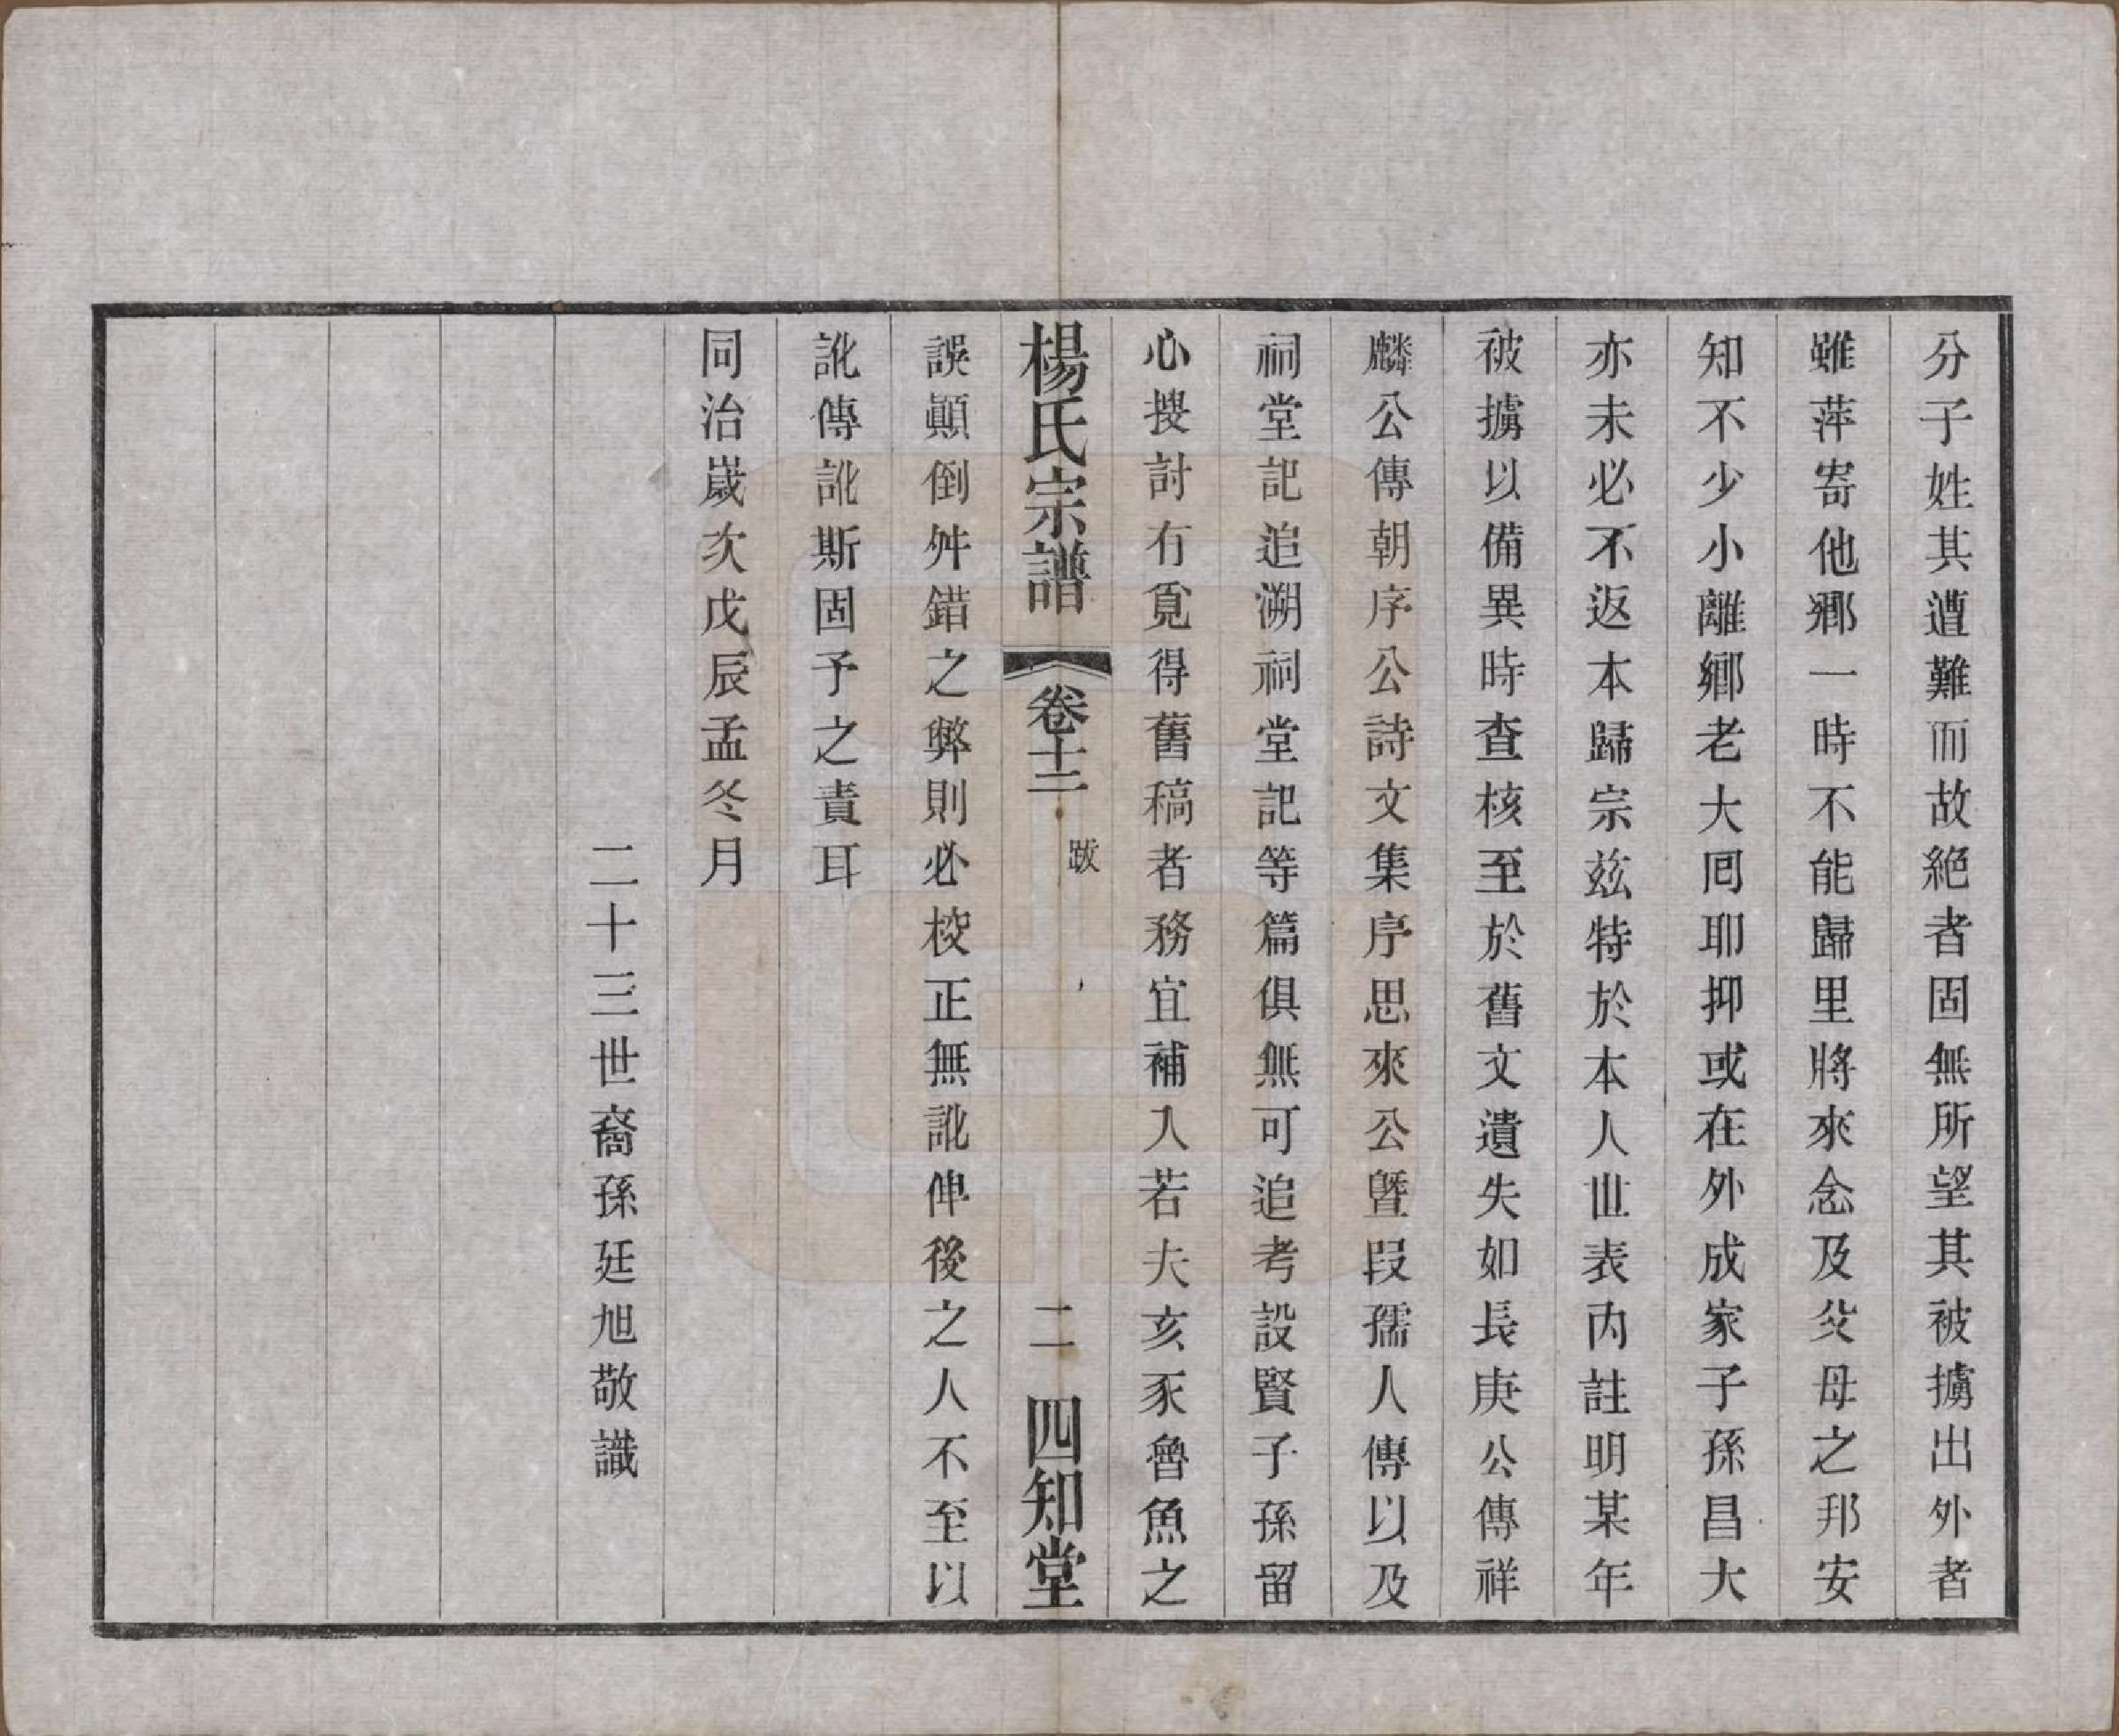 分子姓其遭難而故絕者固無所望其被擄出外者
雖萍寄他鄉一時不能歸里將來念及父母之邦安
知不少小離鄉老大囘耶抑或在外成家子孫昌大
亦未必不返本歸宗兹特於本人世表內註明某年
被擄以備異時查核至於舊文遺失如長庚公傳祥
麟公傳朝序公詩文集序思來公曁段孺人傳以及
祠堂記追溯祠堂記等篇俱無可追考設賢子孫留
心搜討有覓得舊稿者務宜補入若夫亥豕魯魚之
楊氏宗譜 卷十二 跋 二 四知堂
誤顚倒舛錯之弊則必校正無訛俾後之人不至以
訛傳訛斯固予之責耳
同治嵗次戊辰孟冬月
二十三世裔孫廷旭敬識